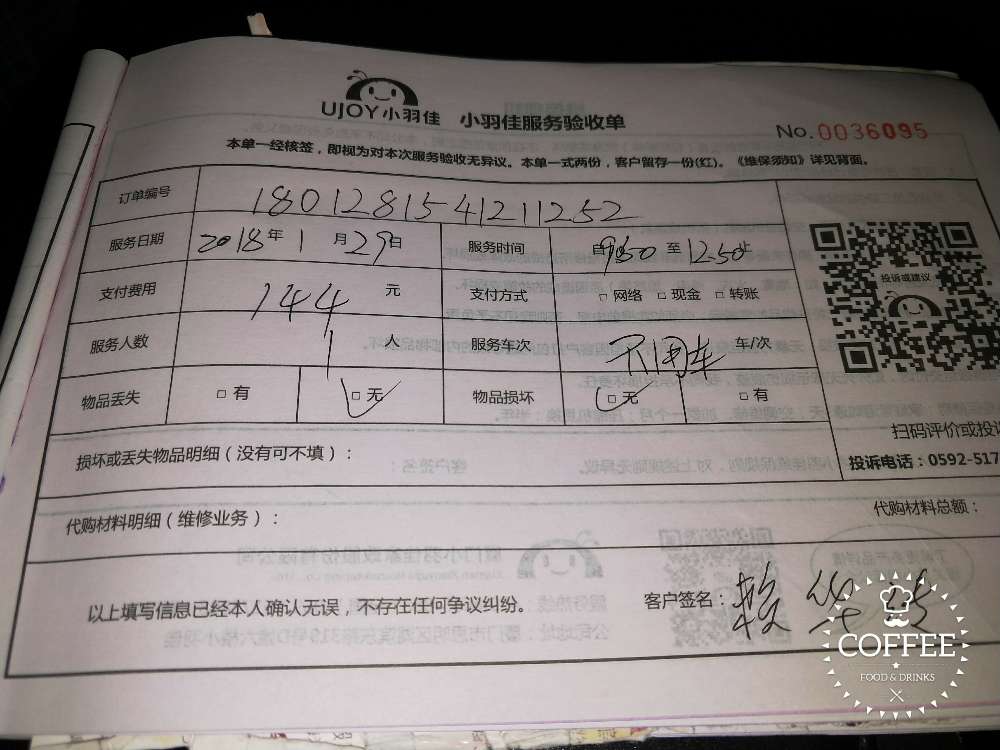 UJOY小羽佳 小羽佳服务验收单
No.0036095
本单一经核签，即视为对本次服务验收无异议。本单一式两份，客户留存一份(红)。《维保须知》详见背面。
订单编号 1801281541211252
服务日期 2018年1月29日 服务时间 自9:50至12:50止
支付费用 144元 支付方式 □网络 □现金 □转账
服务人数 1人 服务车次 不用车 车/次
物品丢失 □有 □无 物品损坏 □无 □有
投诉或建议
扫码评价或投
损坏或丢失物品明细（没有可不填）：
投诉电话：0592-517
代购材料明细（维修业务）：
代购材料总额：
以上填写信息已经本人确认无误，不存在任何争议纠纷。
客户签名：赖
COFFEE
FOOD & DRINKS